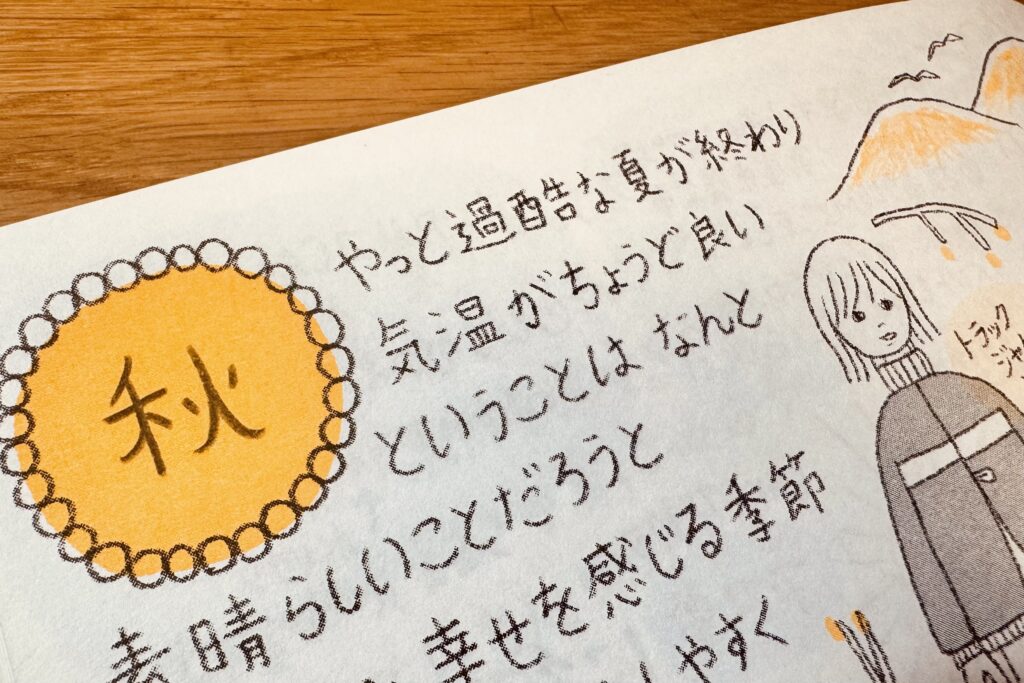 秋
やっと過酷な夏が終わり
気温がちょうど良い
ということは なんと
素晴らしいことだろうと
幸せを感じる季節
しやすく
トラック
ジャ